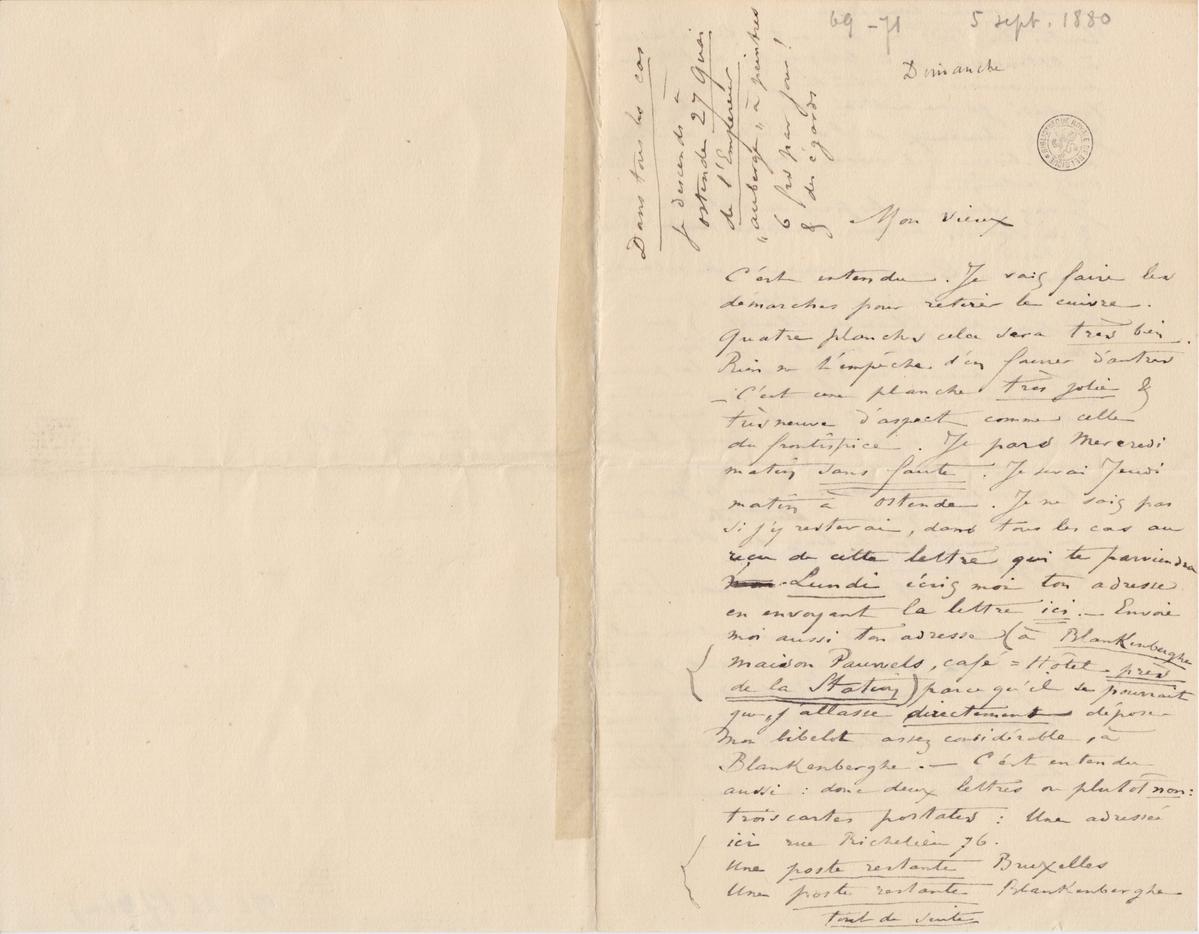 69-71 5 sept. 1880
Dimanche
BIBLIOTHEQUE ROYALE DE BELGIQUE
Dans tous les cas
je descends à
ostende 27 Quai
de l'Empereur
"auberge" à peintres
6 frs par jour!
& des égards
Mon vieux
C'est entendu. Je vais faire les
démarches pour retirer le cuivre.
Quatre planches cela sera très bien.
Rien ne t'empêche d'en fournir d'autres
- C'est une planche très jolie &
très neuve d'aspect comme celle
du frontispice. Je pars Mercredi
matin sans faute. Je serai Jeudi
matin à Ostende. Je ne sais pas
si j'y resterai, dans tous les cas au
reçu de cette lettre qui te parviendra
Lundi écris moi ton adresse
en envoyant la lettre ici. - Envoie
moi aussi ton adresse (à Blankenberghe
maison Pauwels, café = Hôtel près
de la Station) parce qu'il se pourrait
que j'allasse directement dépose
mon bibelot assez considérable, à
Blankenberghe. - C'est entendu
aussi : donc deux lettres ou plutôt non:
trois cartes postales : Une adressée
ici rue Richelieu 76.
Une poste restante Bruxelles
Une poste restante Blankenberghe
tout de suite